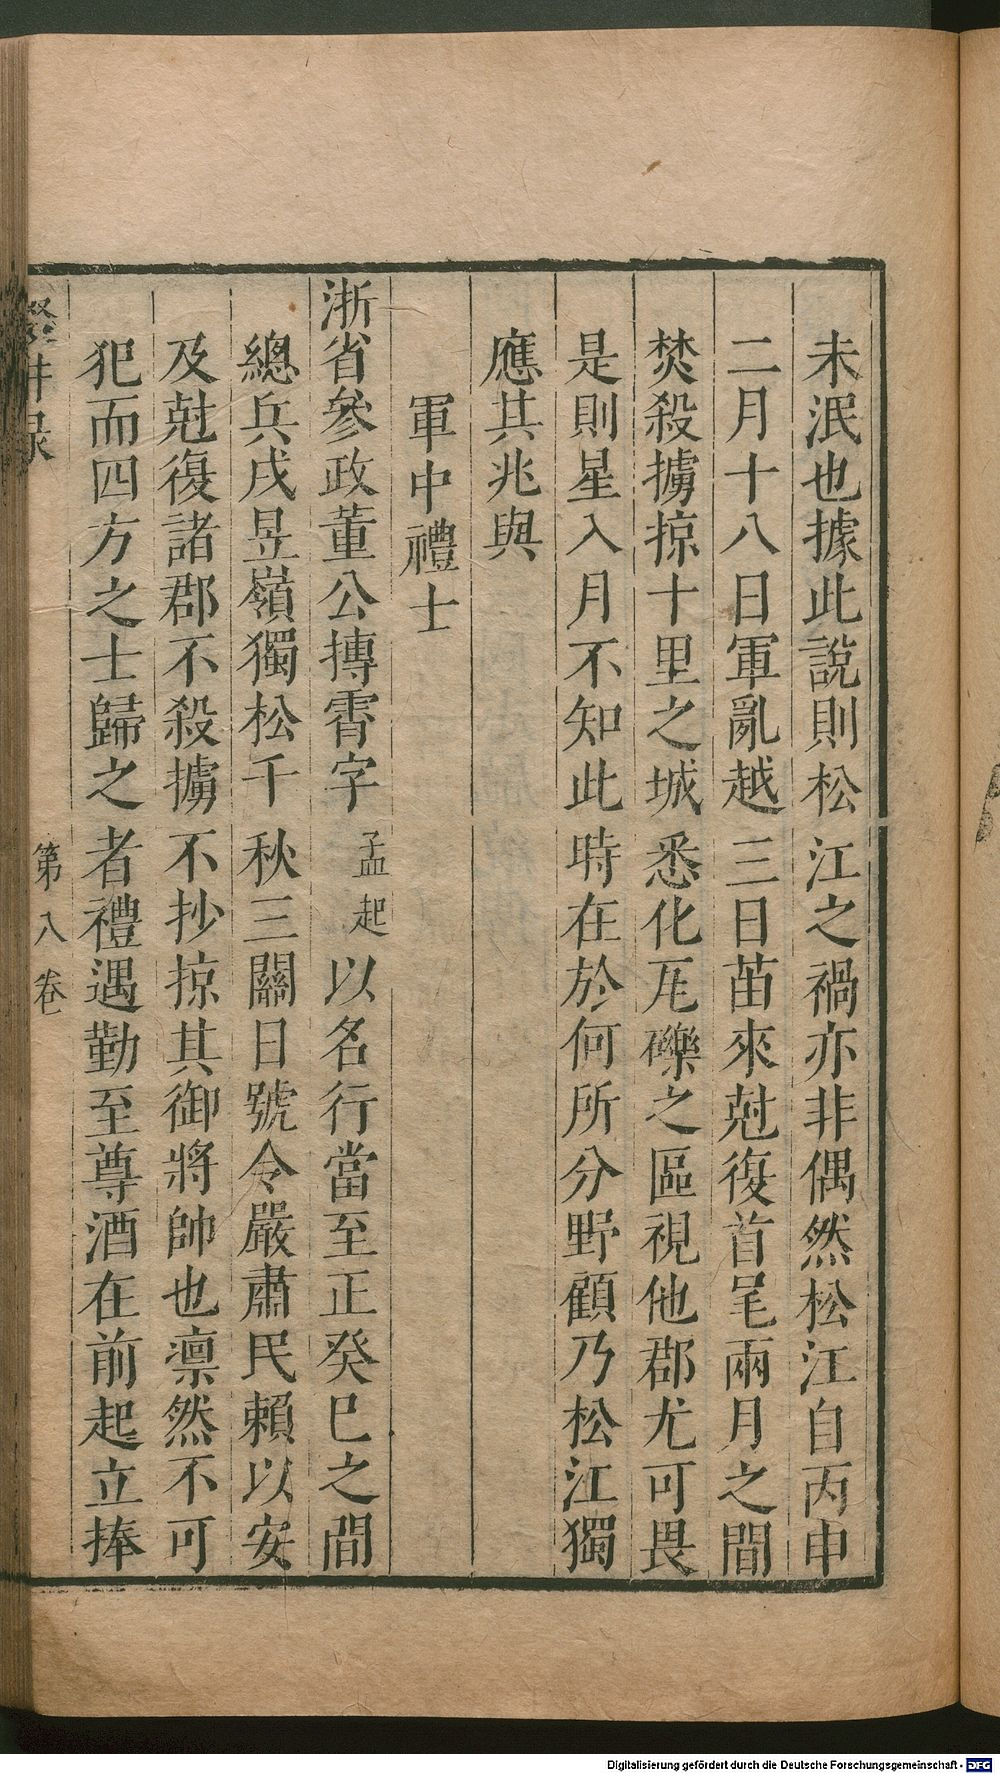 未泯也據此説則松江之禍亦非偶然松江自丙申
二月十八日軍亂越三日苗來尅復首尾兩月之間
焚殺擄掠十里之城悉化瓦礫之區視他郡尤可畏
是則星入月不知此時在於何所分野顧乃松江獨
應其兆與
軍中禮士
浙省參政董公摶霄字孟起以名行當至正癸巳之間
總兵戍昱嶺獨松千秋三關日號令嚴肅民賴以安
及尅復諸郡不殺擄不抄掠其御將帥也凛然不可
犯而四方之士歸之者禮遇勤至尊酒在前起立捧
第八卷
Digitalisierung gefördert durch die Deutsche Forschungsgemeinschaft - DFG